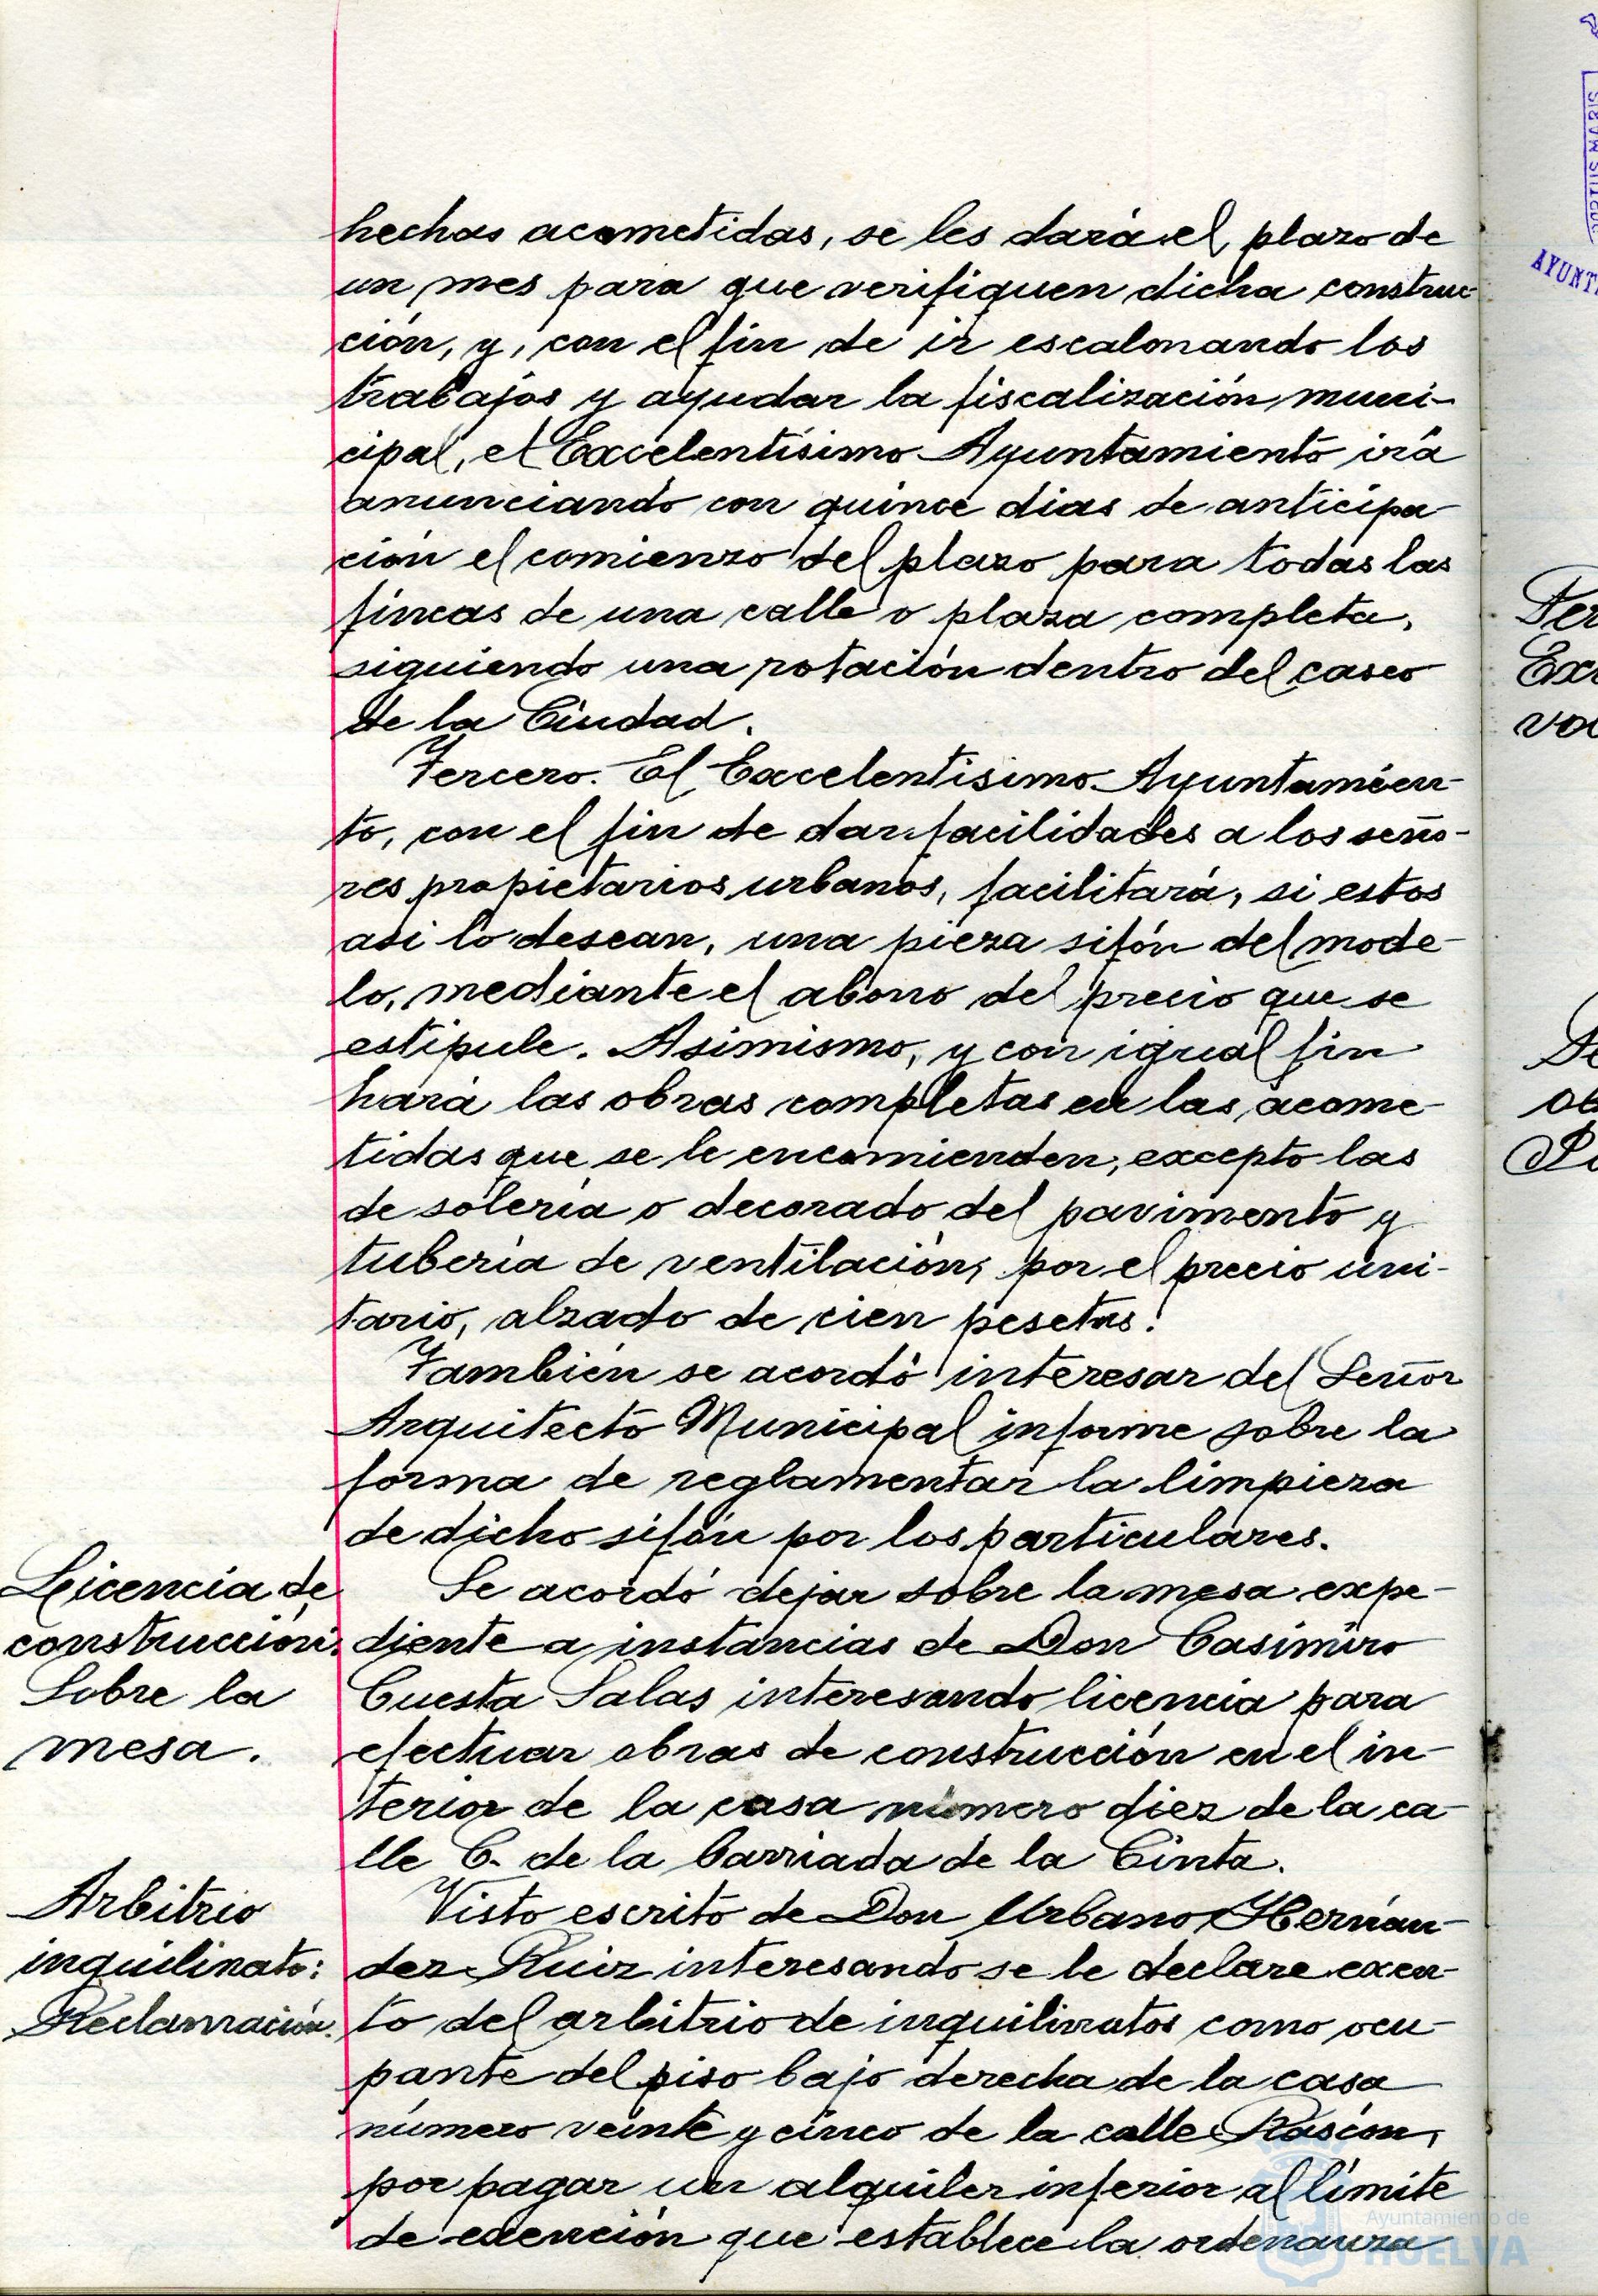 hechas acometidas, se les dará el plazo de
un mes para que verifiquen dicha construc-
ción, y, con el fin de ir escalonando los
trabajos y ayudar la fiscalización muni-
cipal, el Excelentísimo Ayuntamiento irá
anunciando con quince dias de anticipa-
ción el comienzo del plazo para todas las
fincas de una calle o plaza completa,
siguiendo una rotación dentro del casco
de la Ciudad.
Tercero. El Excelentisimo Ayuntamien-
to, con el fin de dar facilidades a los seño-
res propietarios urbanos, facilitará, si estos
asi lo desean, una pieza sifón del mode-
lo, mediante el abono del precio que se
estipule. Asimismo, y con igual fin
hará las obras completas en las acome-
tidas que se le encomienden, excepto las
de solería o decorado del pavimento y
tubería de ventilación, por el precio uni-
tario, alzado de cien pesetas.
También se acordó interesar del Señor
Arquitecto Municipal informe sobre la
forma de reglamentar la limpieza
de dicho sifón por los particulares.
Licencia de
construcción.
Sobre la
mesa.
Se acordó dejar sobre la mesa expe-
diente a instancias de Don Casimiro
Cuesta Salas interesando licencia para
efectuar obras de construcción en el in-
terior de la casa número diez de la ca-
lle C. de la barriada de la Cinta.
Arbitrio
inquilinato:
Reclamación.
Visto escrito de Don Urbano Hernán-
dez Ruiz interesando se le declare exen-
to del arbitrio de inquilinatos como ocu-
pante del piso bajo derecha de la casa
número veinte y cinco de la calle Rascón,
por pagar un alquiler inferior al límite
de exención que establece la ordenanza
Ayuntamiento de
HUELVA